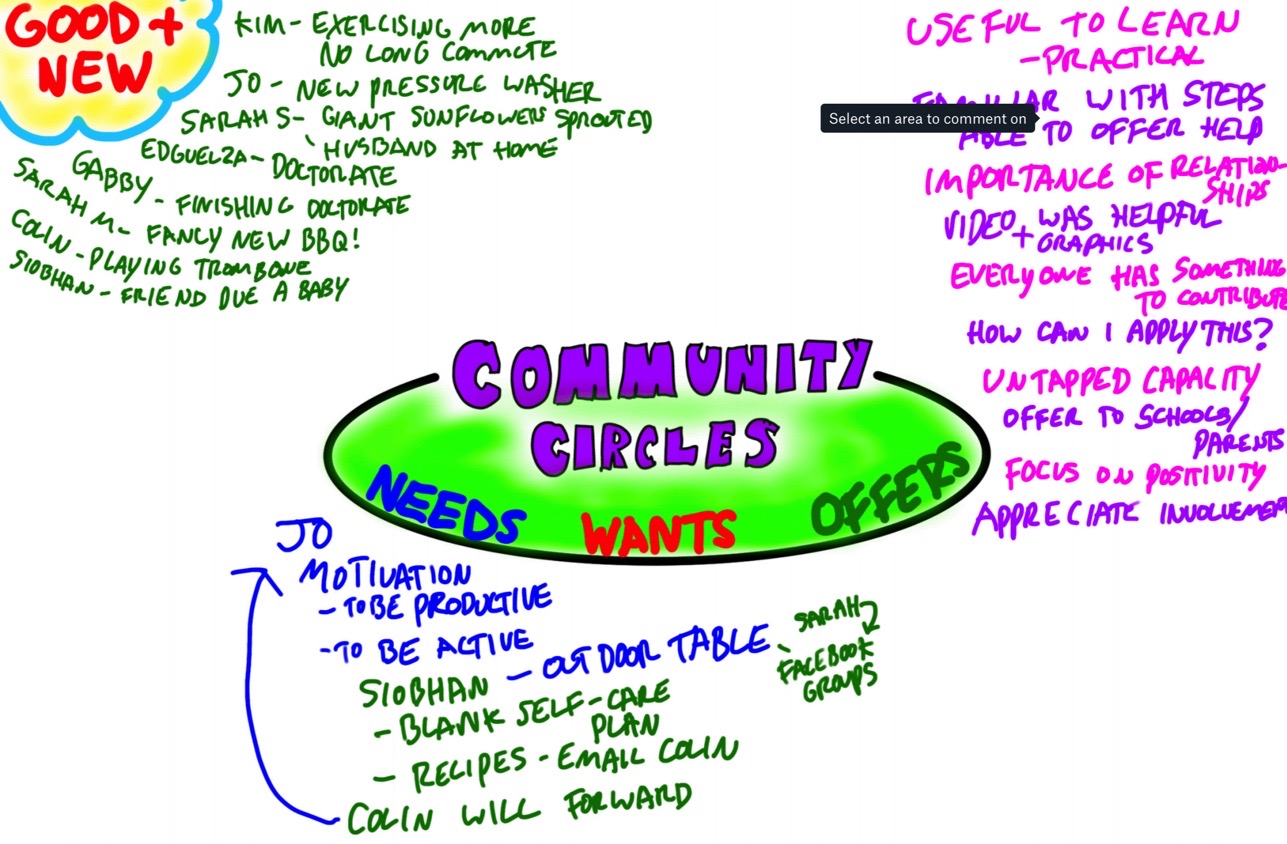 GOOD +
NEW
KIM - EXERCISING MORE
NO LONG COMMUTE
JO - NEW PRESSURE WASHER
SARAH S - GIANT SUNFLOWERS SPROUTED
HUSBAND AT HOME
EDGUELZA - DOCTORATE
GABBY - FINISHING DOCTORATE
SARAH M - FANCY NEW BBQ!
COLIN - PLAYING TROMBONE
SIOBHAN - FRIEND DUE A BABY
USEFUL TO LEARN
- PRACTICAL
FAMILIAR WITH STEPS
Select an area to comment on
ABLE TO OFFER HELP
IMPORTANCE OF RELATION-
SHIPS
VIDEO + WAS HELPFUL
GRAPHICS
EVERYONE HAS SOMETHING
TO CONTRIBUTE
HOW CAN I APPLY THIS?
UNTAPPED CAPACITY
OFFER TO SCHOOLS/
PARENTS
FOCUS ON POSITIVITY
APPRECIATE INVOLVEMEN
COMMUNITY
CIRCLES
NEEDS WANTS OFFERS
JO
MOTIVATION
- TO BE PRODUCTIVE
- TO BE ACTIVE
- OUTDOOR TABLE
SARAH
- FACEBOOK
GROUPS
SIOBHAN
- BLANK SELF-CARE
PLAN
- RECIPES - EMAIL COLIN
COLIN WILL FORWARD